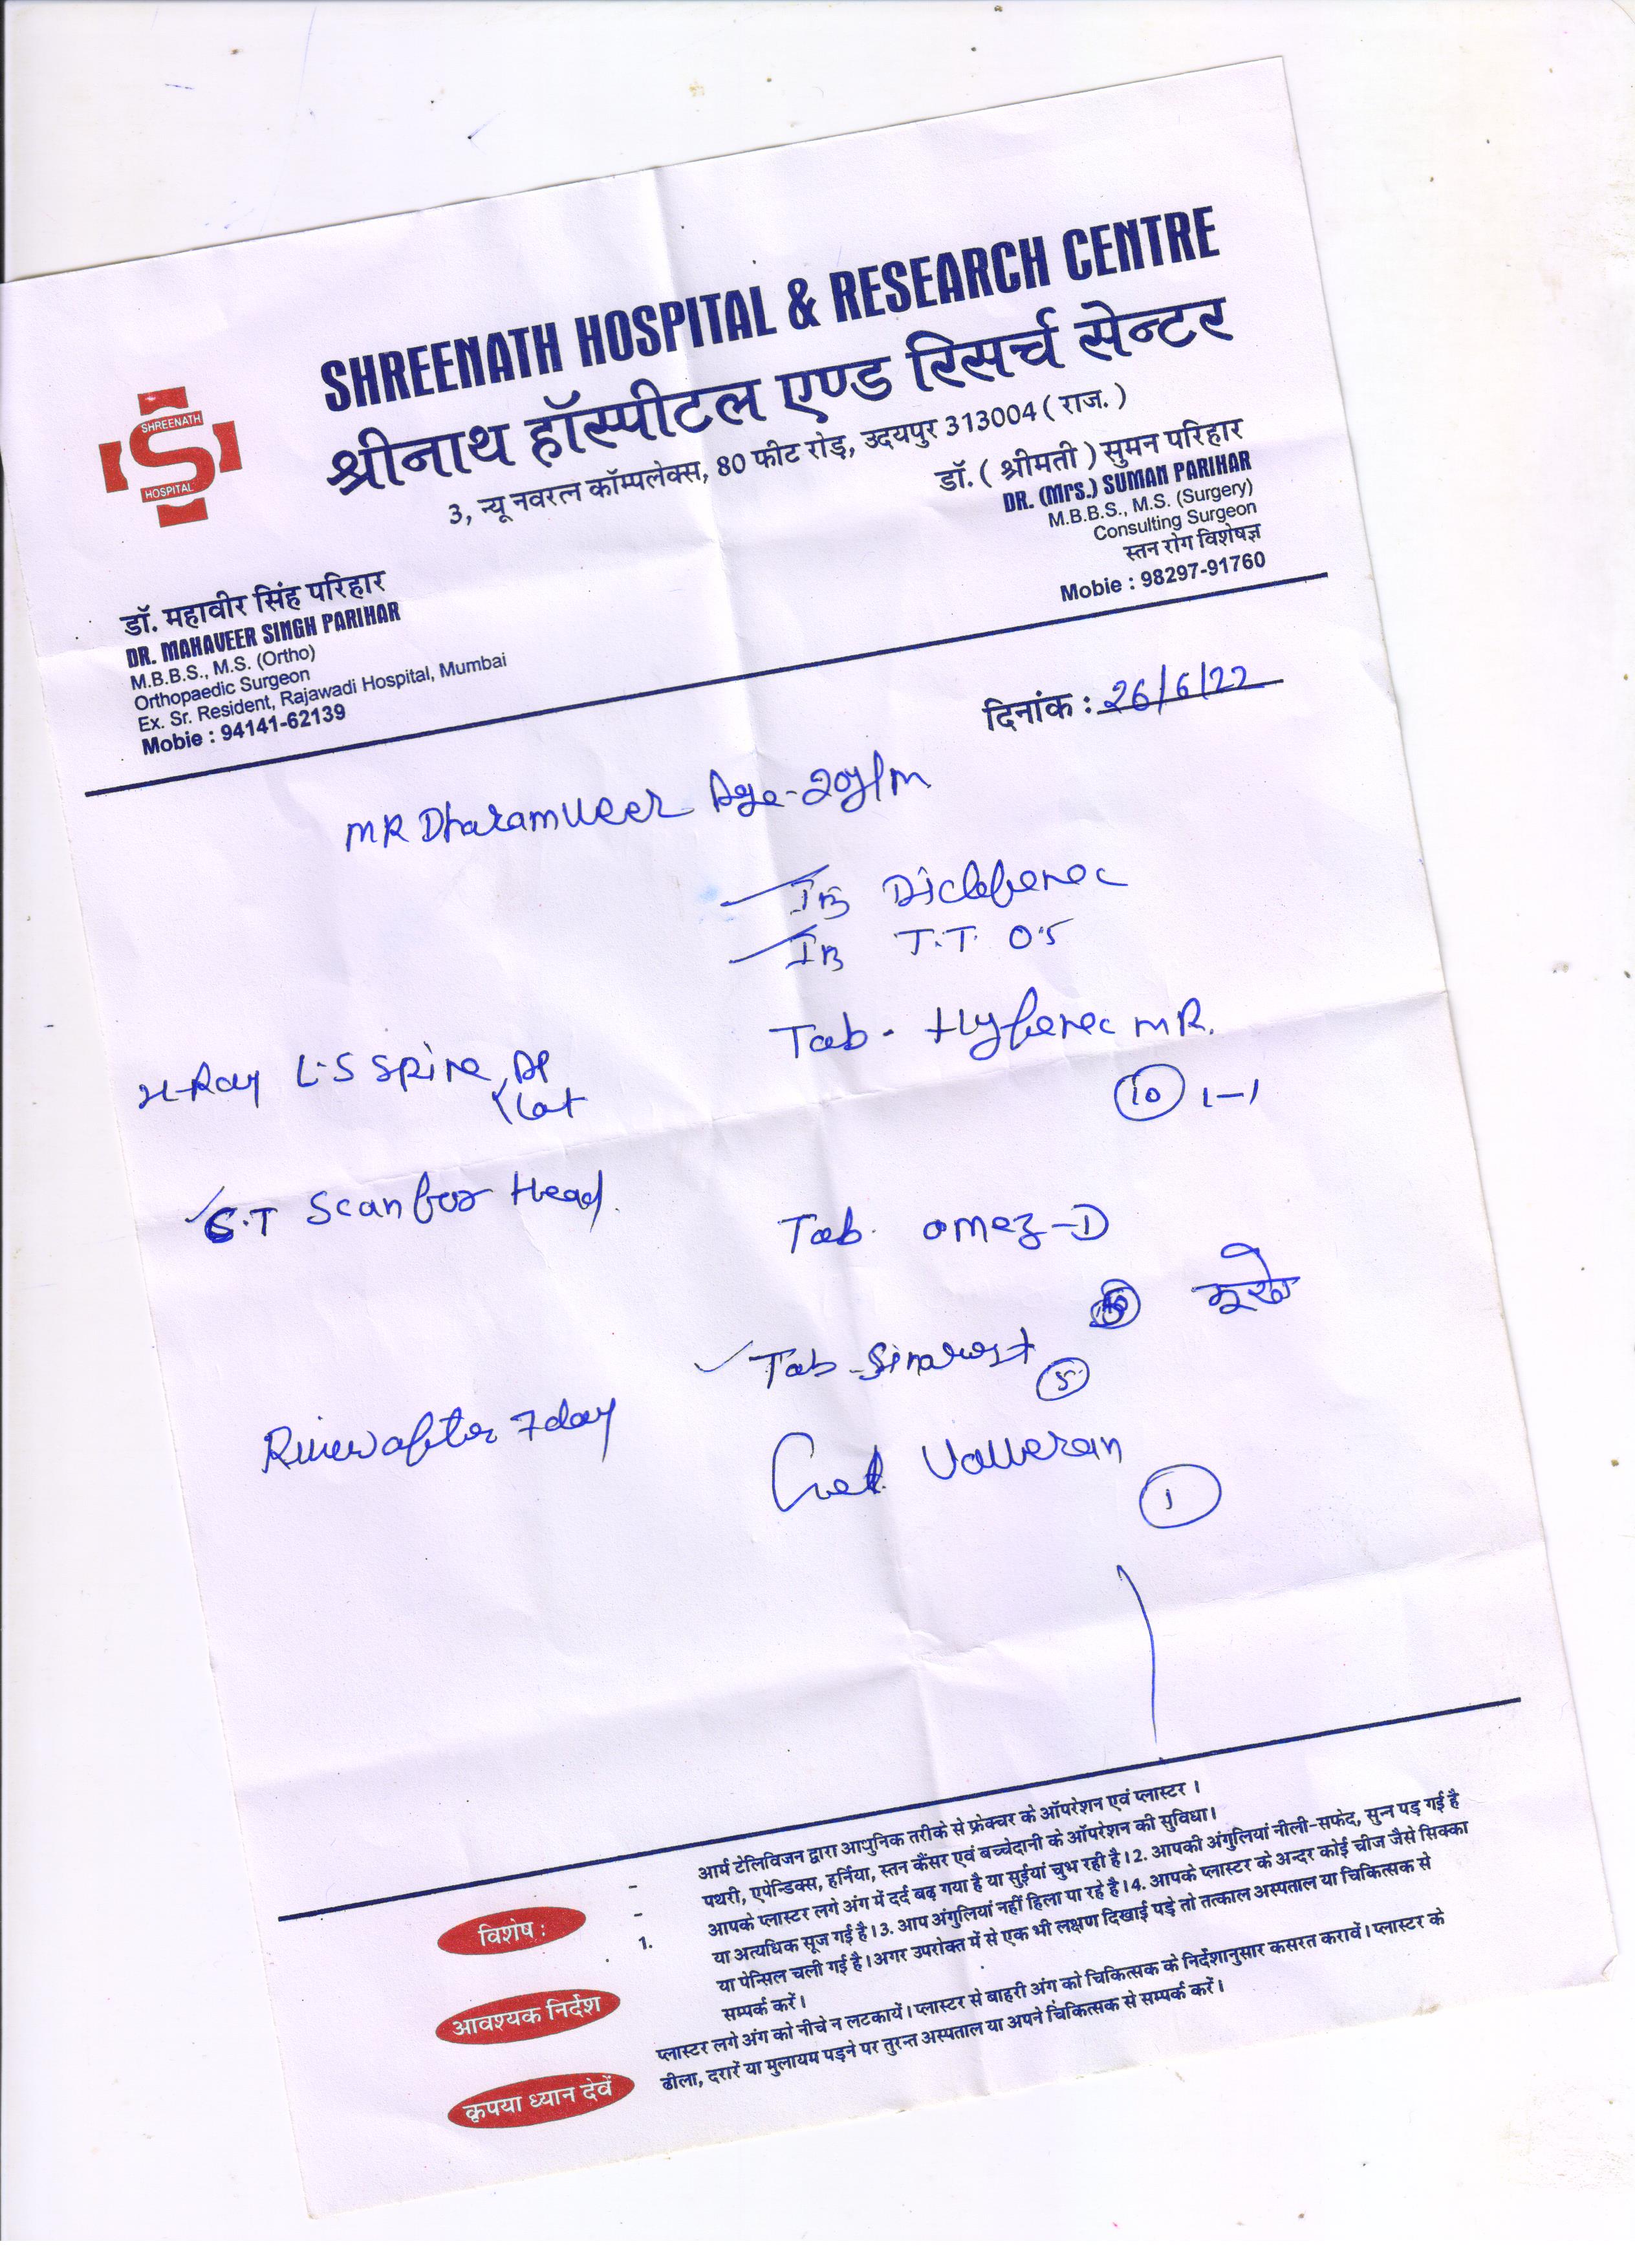 SHREENATH HOSPITAL & RESEARCH CENTRE
श्रीनाथ हॉस्पीटल एण्ड रिसर्च सेन्टर
3, न्यू नवरत्न कॉम्पलेक्स, 80 फीट रोड़, उदयपुर 313004 ( राज. )
SHREENATH
S
HOSPITAL
डॉ. ( श्रीमती ) सुमन परिहार
DR. (Mrs.) SUMAN PARIHAR
M.B.B.S., M.S. (Surgery)
Consulting Surgeon
स्तन रोग विशेषज्ञ
Mobie : 98297-91760
डॉ. महावीर सिंह परिहार
DR. MAHAVEER SINGH PARIHAR
M.B.B.S., M.S. (Ortho)
Orthopaedic Surgeon
Ex. Sr. Resident, Rajawadi Hospital, Mumbai
Mobie : 94141-62139
दिनांक : 26/6/22
MR Dharamveer Age-20y/m
Diclofenec
T.T. 0.5
Tab- Hyfenec MR.
10 1-1
X-Ray L-S Spire, AP
Lat
C.T Scan for Head.
Tab. omez-D
Tab
5
after 7 day
1
विशेष :
- आर्म टेलिविजन द्वारा आधुनिक तरीके से फ्रेक्चर के ऑपरेशन एवं प्लास्टर ।
- पथरी, एपेन्डिक्स, हर्निया, स्तन कैंसर एवं बच्चेदानी के ऑपरेशन की सुविधा।
आवश्यक निर्देश
1. आपके प्लास्टर लगे अंग में दर्द बढ़ गया है या सुईयां चुभ रही है।2. आपकी अंगुलियां नीली-सफेद, सुन्न पड़ गई है
या अत्यधिक सूज गई है।3. आप अंगुलियां नहीं हिला पा रहे है।4. आपके प्लास्टर के अन्दर कोई चीज जैसे सिक्का
या पेन्सिल चली गई है। अगर उपरोक्त में से एक भी लक्षण दिखाई पड़े तो तत्काल अस्पताल या चिकित्सक से
सम्पर्क करें।
कृपया ध्यान देवें
प्लास्टर लगे अंग को नीचे न लटकायें। प्लास्टर से बाहरी अंग को चिकित्सक के निर्देशानुसार कसरत करावें। प्लास्टर के
ढीला, दरारें या मुलायम पड़ने पर तुरन्त अस्पताल या अपने चिकित्सक से सम्पर्क करें।